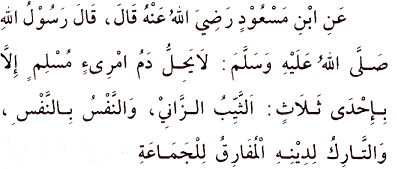 عَنِ ابْنِ مَسْعُوْدٍ رَضِيَ اللهُ عَنْهُ قَالَ، قَالَ رَسُوْلُ اللهِ
صَلَّى اللهُ عَلَيْهِ وَسَلَّمَ: لَايَحِلُّ دَمُ امْرِىءٍ مُسْلِمٍ إِلَّا
بِإِحْدَى ثَلَاثٍ: اَلثَّيِّبُ الزَّانِيْ، وَالنَّفْسُ بِالنَّفْسِ،
وَالتَّارِكُ لِدِيْنِهِ الْمُفَارِقُ لِلْجَمَاعَةِ